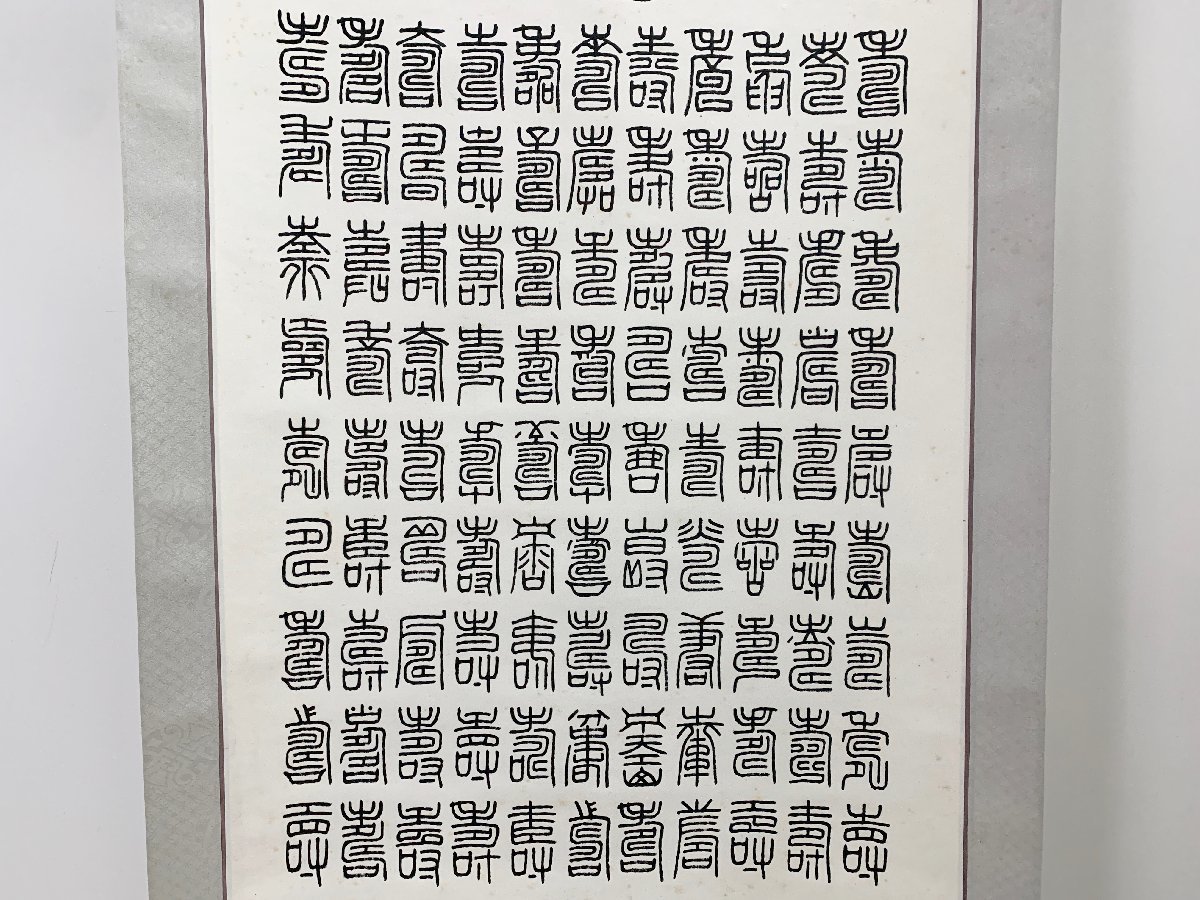 壽壽壽壽壽壽壽壽壽
壽壽壽壽壽壽壽壽壽
壽壽壽壽壽壽壽壽壽
壽壽壽壽壽壽壽壽壽
壽壽壽壽壽壽壽壽壽
壽壽壽壽壽壽壽壽壽
壽壽壽壽壽壽壽壽壽
壽壽壽壽壽壽壽壽壽
壽壽壽壽壽壽壽壽壽
壽壽壽壽壽壽壽壽壽
壽壽壽壽壽壽壽壽壽